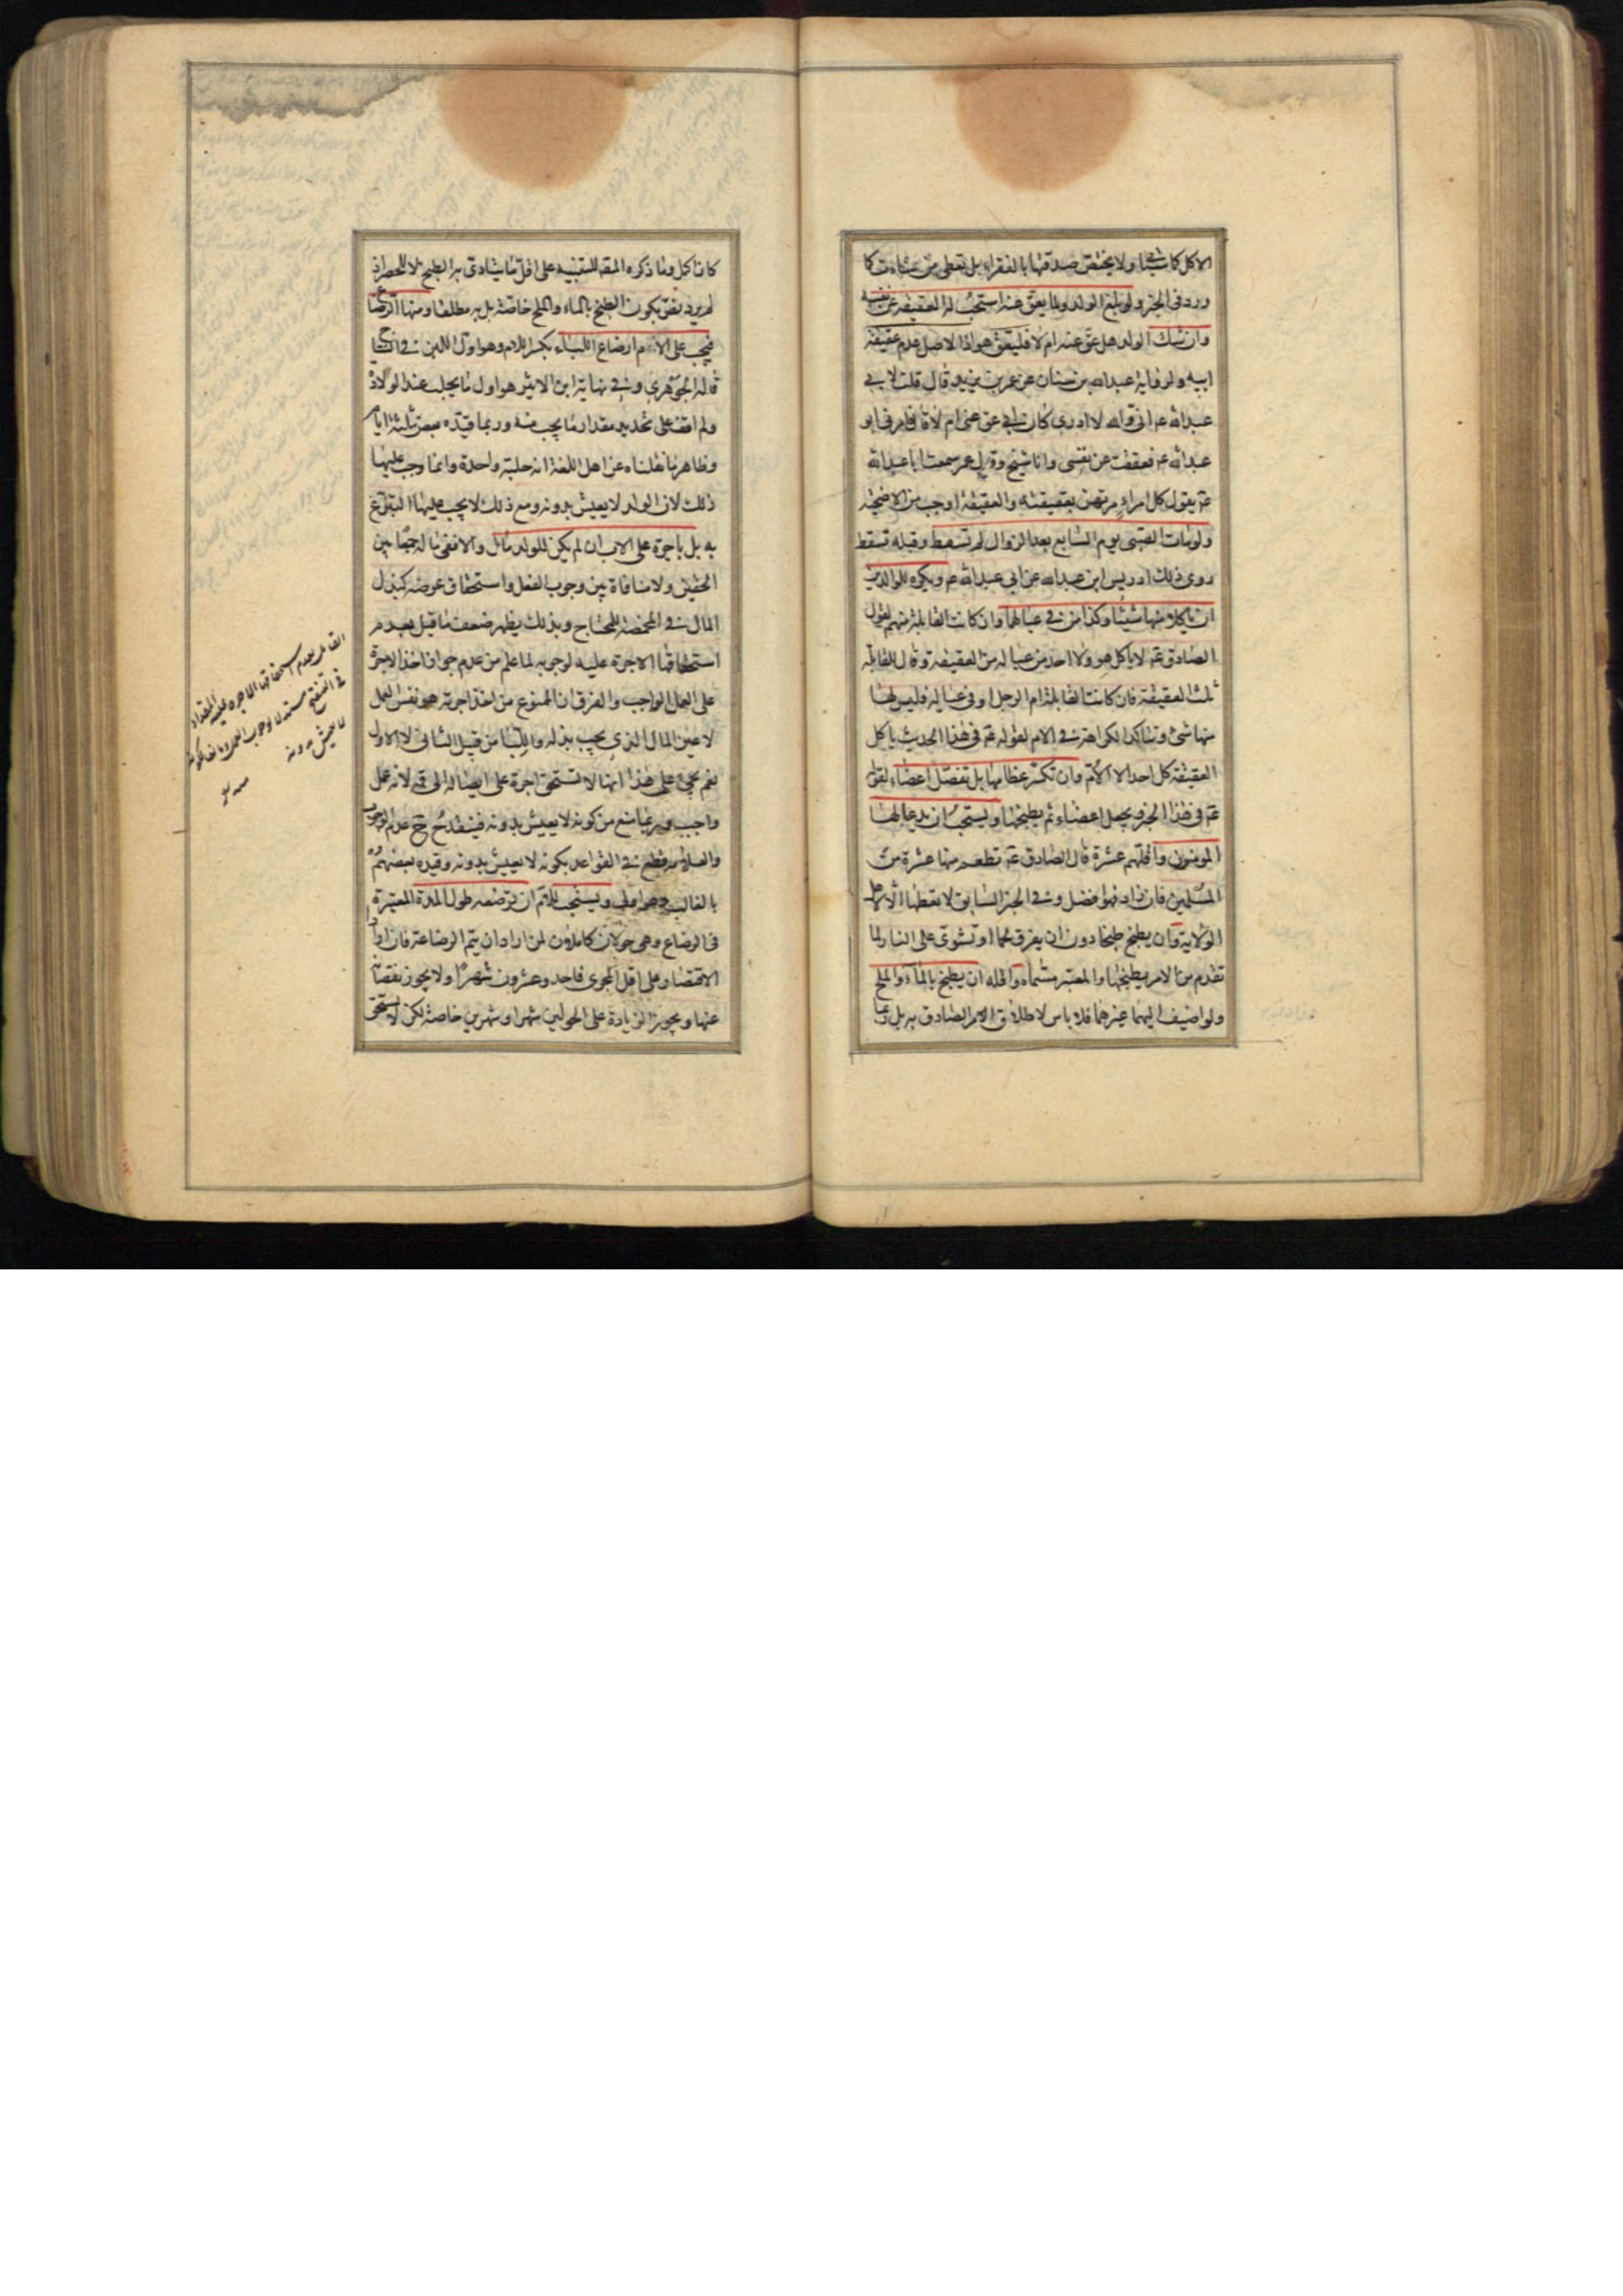 الاكل كما شيئا ولا يختص صدقتها بالفقراء بل تعطى من شاءت كما
ورد في الخبر ولو بلغ الولد ولما يعق عنه استحب له العقيقة عن نفسه
وان شك الولد هل عق عنه ام لا فليعق هو اذ الاصل عدم عقيقة
ابيه ولرواية عبدالله بن سنان عن عمر بن يزيد قال قلت لابي
عبدالله ع اني والله لا ادري كان ابي عق عني ام لا قال فامرني ابو
عبدالله ع فعققت عن نفسي وانا شيخ وقال عمر سمعت ابا عبدالله
ع يقول كل امرء مرتهن بعقيقته والعقيقة اوجب من الاضحية
ولو مات الصبي يوم السابع بعد الزوال لم تسقط وقبله تسقط
روى ذلك ادريس ابن عبدالله عن ابي عبدالله ع ويكره للوالدين
ان ياكلا منها شيئا وكذا من في عيالهما وان كانت القابلة منهم لقول
الصادق ع لا ياكل هو ولا احد من عياله من العقيقة وقال للقابلة
ثلث العقيقة فان كانت القابلة ام الرجل او في عياله فليس لها
منها شئ وتتاكد الكراهة في الام لقوله ع في هذا الحديث ياكل
العقيقة كل احد الا الام وان تكسر عظامها بل تفصل اعضاء لقوله
ع في هذا الخبر ويجعل اعضاء ثم يطبخها ويستحب ان يدعا لها
المومنون واقلهم عشرة قال الصادق ع تطعم منها عشرة من
المسلمين فان زاد فهو افضل وفي الخبر السابق لا يعطها الا لاهل
الولاية وان يطبخ طبخا دون ان يفرق لحما او تشوى على النار لما
تقدم من الامر بطبخها والمعتبر مسماه واقله ان يطبخ بالماء والملح
ولو اضيف اليهما غيرهما فلا باس لاطلاق الامر الصادق به بل ربما
كانا كمل وما ذكره المص للتنبيه على اقل ما يتادى به الطبخ لا للحصر اذ
لم يرد نص بكون الطبخ بالماء والملح خاصة بل به مطلقا ومنها الرضاع
فيجب على الام ارضاع اللباء بكسر اللام وهو اول اللبن في النتاج
قاله الجوهري وفي نهاية ابن الاثير هو اول ما يحلب عند الولادة
ولم اقف على تحديد مقدار ما يجب منه وربما قيده بعض بثلثة ايام
وظاهر ما نقلناه عن اهل اللغة انه حلبة واحدة وانما وجب عليها
ذلك لان الولد لا يعيش بدونه ومع ذلك لا يجب عليها التبرع
به بل باجرة على الاب ان لم يكن للولد مال والا ففي ماله جمعا بين
الحقين ولا منافاة بين وجوب الفعل واستحقاق عوضه كبذل
المال في المخمصة للمحتاج وبذلك يظهر ضعف ما قيل بعدم
استحقاقها الاجرة عليه لوجوبه لما علم من عدم جواز اخذ الاجرة
على العمل الواجب والفرق ان الممنوع من اخذ اجرته هو نفس العمل
لا عين المال الذي يجب بذله واللباء من قبيل الثاني لا الاول
نعم يجئ على هذا انها لا تستحق اجرة على ايصاله الى فمه لانه عمل
واجب وربما منع من كونه لا يعيش بدونه فينقدح ح عدم الوجوب
والعلامه قطع في القواعد بكونه لا يعيش بدونه وقيده بعضهم
بالغالب وهو اولى ويستحب للام ان ترضعه طول المدة المعتبرة
في الرضاع وهي حولان كاملان لمن اراد ان يتم الرضاعة فان اراد
الاقتصار على اقل المجزي فاحد وعشرون شهرا ولا يجوز نقصانه
عنها ويجوز الزيادة على الحولين شهرا وشهرين خاصة لكن لا تستحق
القائل بعدم استحقاقها الاجرة عليه المقداد
في التنقيح
لا يعيش بدونه
منه